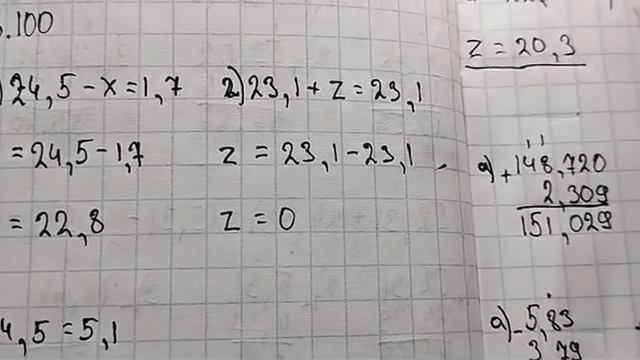 .100
24,5-x=1,7
=24,5-1,7
=22,8
4,5=5,1
2)23,1+z=23,1
z=23,1-23,1
z=0
z=20,3
a)+148,720
2,309
151,029
a)-5,83
3,79